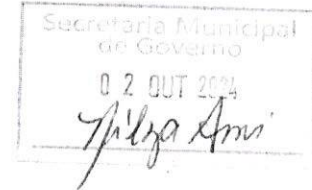 Secretaria Municipal
de Governo
02 OUT 2024
Nilza